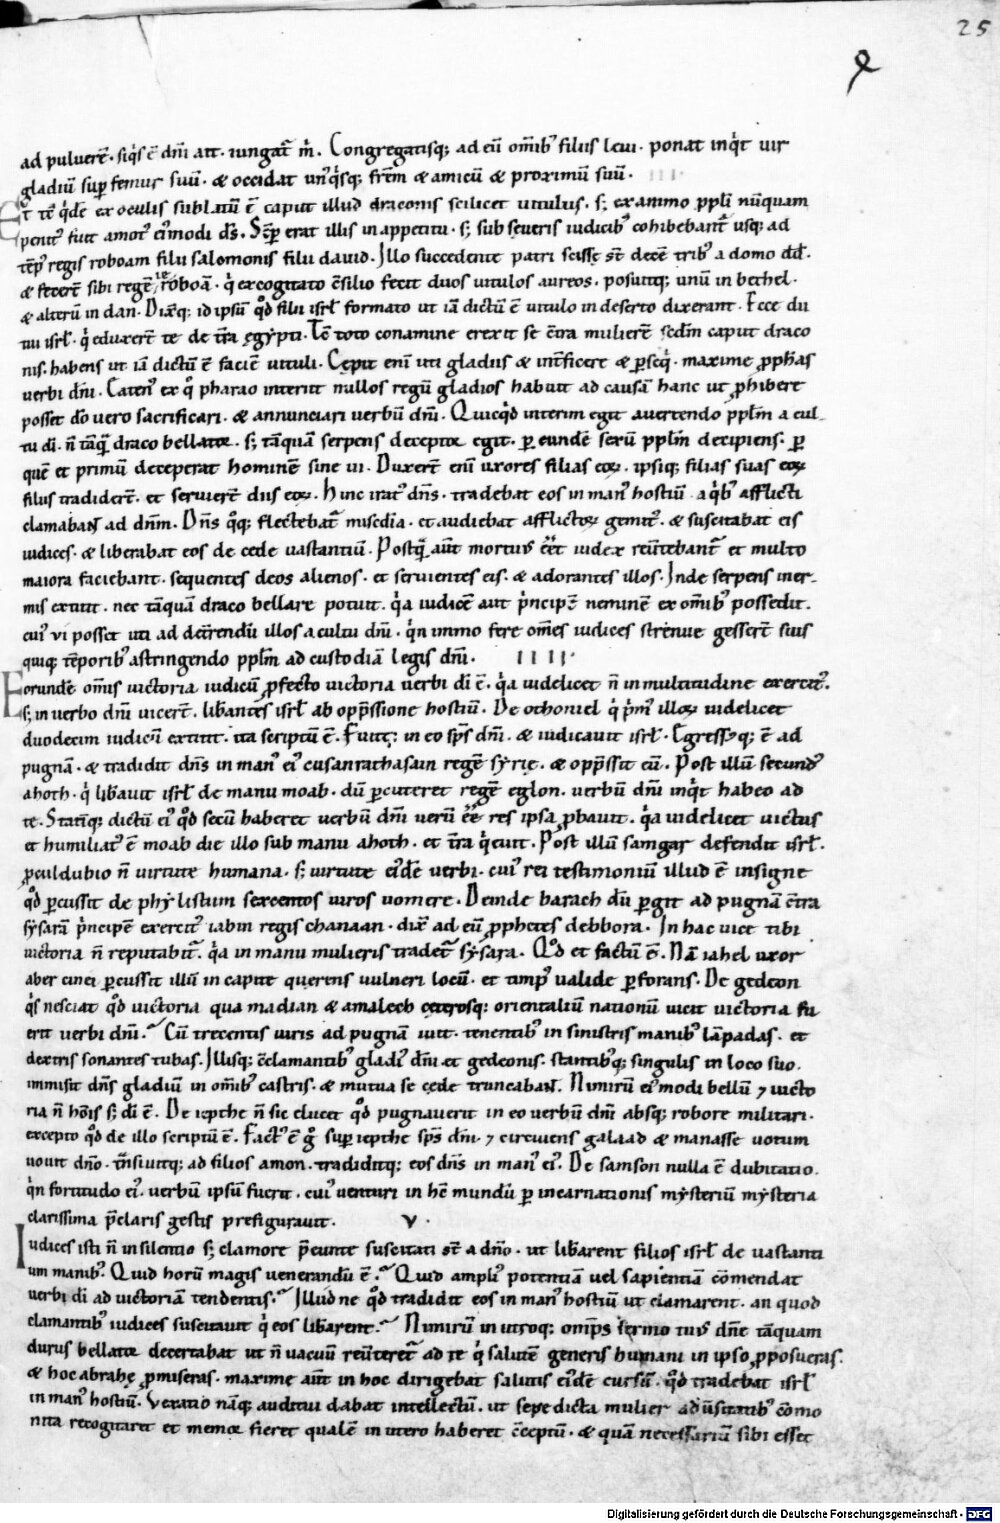 25
ad puluerē. siq̓s ē dn̄i att. iungat᷑ m̓. Congregatisq; ad eū om̄ib; filiis leui. ponat inq̓t uir
gladiū sup̱ femur suū. & occidat un᷒q̓sq; fr̄em & amicū & proximū suū. III.
Et tē q̓dē ex oculis sublatū ē caput illud draconis scilicet uitulus. s; ex animo ppl̄i nūquam
penit᷒ fuit amot᷒ ei᷒modi ds̄. Sēp̱ erat illis in appetitu. s; sub seueris iudicib; cohibebant᷑ usq; ad
tēp᷒ regis roboam filii salomonis filii dauid. Illo succedente patri scissę st̄ decē trib᷒ a domo dd̄.
& fecerē sibi regē ieroboā. q̓ excogitato c̄silio fecit duos uitulos aureos. posuitq; unū in bethel.
& alterū in dan. Dix̄q; id ipsū qd̄ filii isrl̄ formato ut iā dictū ē uitulo in deserto dixerant. Ecce dii
tui isrl̄. q̓ eduxerē te de tr̄a ęgypti. Tc̄ toto conamine erexit se c̄tra mulierē sed̄m caput draco
nis. habens ut iā dictū ē faciē uituli. Cępit eni uti gladiis & int̄ficere & p̱seq̓. maxime p̱phās
uerbi dn̄i. Caten᷒ ex q̊ pharao interiit nullos regū gladios habuit ad causā hanc ut p̱hibere
posset dō uero sacrificari. & annunciari uerbū dn̄i. Quicq̓d interim egit auertendo ppl̄m a cul-
tu di. n̄ tāq̄ draco bellator. s; tāquā serpens deceptor egit. p̱ eundē sexū ppl̄m decipiens. p̱
quē et primū deceperat hominē sine ui. Duxerē enī uxores filias eoꝝ. ipsiq; filias suas eoꝝ
filiis tradiderē. et seruierē diis eoꝝ. Hinc irat᷒ dn̄s. tradebat eos in man᷒ hostiū. a q̓b; afflicti
clamabant ad dn̄m. Dn̄s q̊q; flectebat᷑ misc̄dia. et audiebat afflictoꝝ gemit᷒. & suscitabat eis
iudices. & liberabat eos de cede uastantiū. Postq̄ aūt mortuus ēēt iudex reūtebant᷑ et multo
maiora faciebant. sequentes deos alienos. et seruientes eis. & adorantes illos. Inde serpens iner-
mis extitit. nec tāquā draco bellare potuit. q̓a iudicē aut p̓ncipē neminē ex om̄ib; possedit.
cui᷒ ui posset uti ad det̄rendū illos a cultu dn̄i. q̓n immo fere om̄es iudices strenue gesserē suis
quiq; tēporib; astringendo ppl̄m ad custodiā legis dn̄i. IIII.
Eorundē om̄is uictoria iudicū p̱fecto uictoria uerbi di ē. q̓a uidelicet n̄ in multitudine exercit᷒.
s; in uerbo dn̄i uicerē. lib̄antes isrl̄ ab opp̄ssione hostiū. De othoniel q̓ p̓m᷒ illoꝝ uidelicet
duodecim iudicū extitit. ita scriptū ē. Fuitq; in eo sp̄s dn̄i. & iudicauit isrl̄. Egressusq; ē ad
pugnā. & tradidit dn̄s in man᷒ ei᷒ cusanrathasaim regē syrię. & opp̄ssit eū. Post illū secund᷒
ahoth. q̓ lib̄auit isrl̄ de manu moab. dū p̱cuteret regē eglon. uerbū dn̄i inq̓t habeo ad
te. Statīq; dictū ei᷒ qd̄ secū haberet uerbū dn̄i uerū ēē res ipsa p̱bauit. q̓a uidelicet uictus
et humiliat᷒ ē moab die illo sub manu ahoth. et tr̄a q̓euit. Post illū samgar defendit isrl̄.
p̱culdubio n̄ uirtute humana. s; uirtute ei᷒dē uerbi. cui᷒ rei testimoniū illud ē insigne
qd̄ p̱cussit de phylistiim sexcentos uiros uomere. Deinde barach dū p̱git ad pugnā c̄tra
sysarā p̓ncipē exercit᷒ iabin regis chanaan. dix̄ ad eū p̱phetes debbora. In hac uice tibi
uictoria n̄ reputabit᷑. q̓a in manu mulieris tradet᷑ sysara. Qd̄ et factū ē. Nā iahel uxor
aber cinei p̱cussit illū in capite querens uulneri locū. et timp᷒ ualide p̱forans. De gedeon
q̓s nesciat qd̄ uictoria qua madian & amalech ceterosq; orientaliū nationū uicit uictoria fu
erit uerbi dn̄i. Cū trecentis uiris ad pugnā iuit. tenentib; in sinistris manib; lāpadas. et
dextris sonantes tubas. Illisq; c̄clamantib; gladi᷒ dn̄i et gedeonis. stantib;q; singulis in loco suo.
immisit dn̄s gladiū in om̄ib; castris. & mutua se cęde truncabant. Nimirū ei᷒modi bellū ⁊ uicto
ria n̄ hōis s; di ē. De iepthe n̄ sic elucet qd̄ pugnauerit in eo uerbū dn̄i absq; robore militari.
excepto qd̄ de illo scriptū ē. Fact᷒ ē g̊ sup̱ iepthe sp̄s dn̄i. ⁊ circuiens galaad & manasse uotum
uouit dn̄o. tn̄siuitq; ad filios amon. tradiditq; eos dn̄s in man᷒ ei᷒. De samson nulla ē dubitatio.
q̓n fortitudo ei᷒. uerbū ipsū fuerit. cui᷒ uenturi in hc̄ mundū p̱ incarnationis mysteriū mysteria
clarissima p̄claris gestis prefigurauit. V.
Iudices isti n̄ in silentio s; clamore p̄eunte suscitati st̄ a dn̄o. ut lib̄arent filios isrl̄ de uastanti
um manib;. Quid horū magis uenerandū ē. Quid ampli᷒ potentiā uel sapientiā cōmendat
uerbi di ad uictoriā tendentis. Illud ne qd̄ tradidit eos in man᷒ hostiū ut clamarent. an quod
clamantib; iudices suscitauit q̓ eos lib̄arent. Nimirū in utroq; omp̄s sermo tuus dn̄e tāquam
durus bellator decertabat ut n̄ uacuū reūteret᷑ ad te q̓ salutē generis humani in ipso p̱posueras.
& hoc abrahę p̱miseras. maxime aūt in hoc dirigebat salutis ei᷒dē cursū. qd̄ tradebat isrl̄
in man᷒ hostiū. Vexatio nāq; auditui dabat intellectū. ut sepe dicta mulier adūsitatib; cōmo
nita recogitaret et memor fieret qualē in utero haberet c̄ceptū. & quā necessariū sibi esset
Digitalisierung gefördert durch die Deutsche Forschungsgemeinschaft - DFG